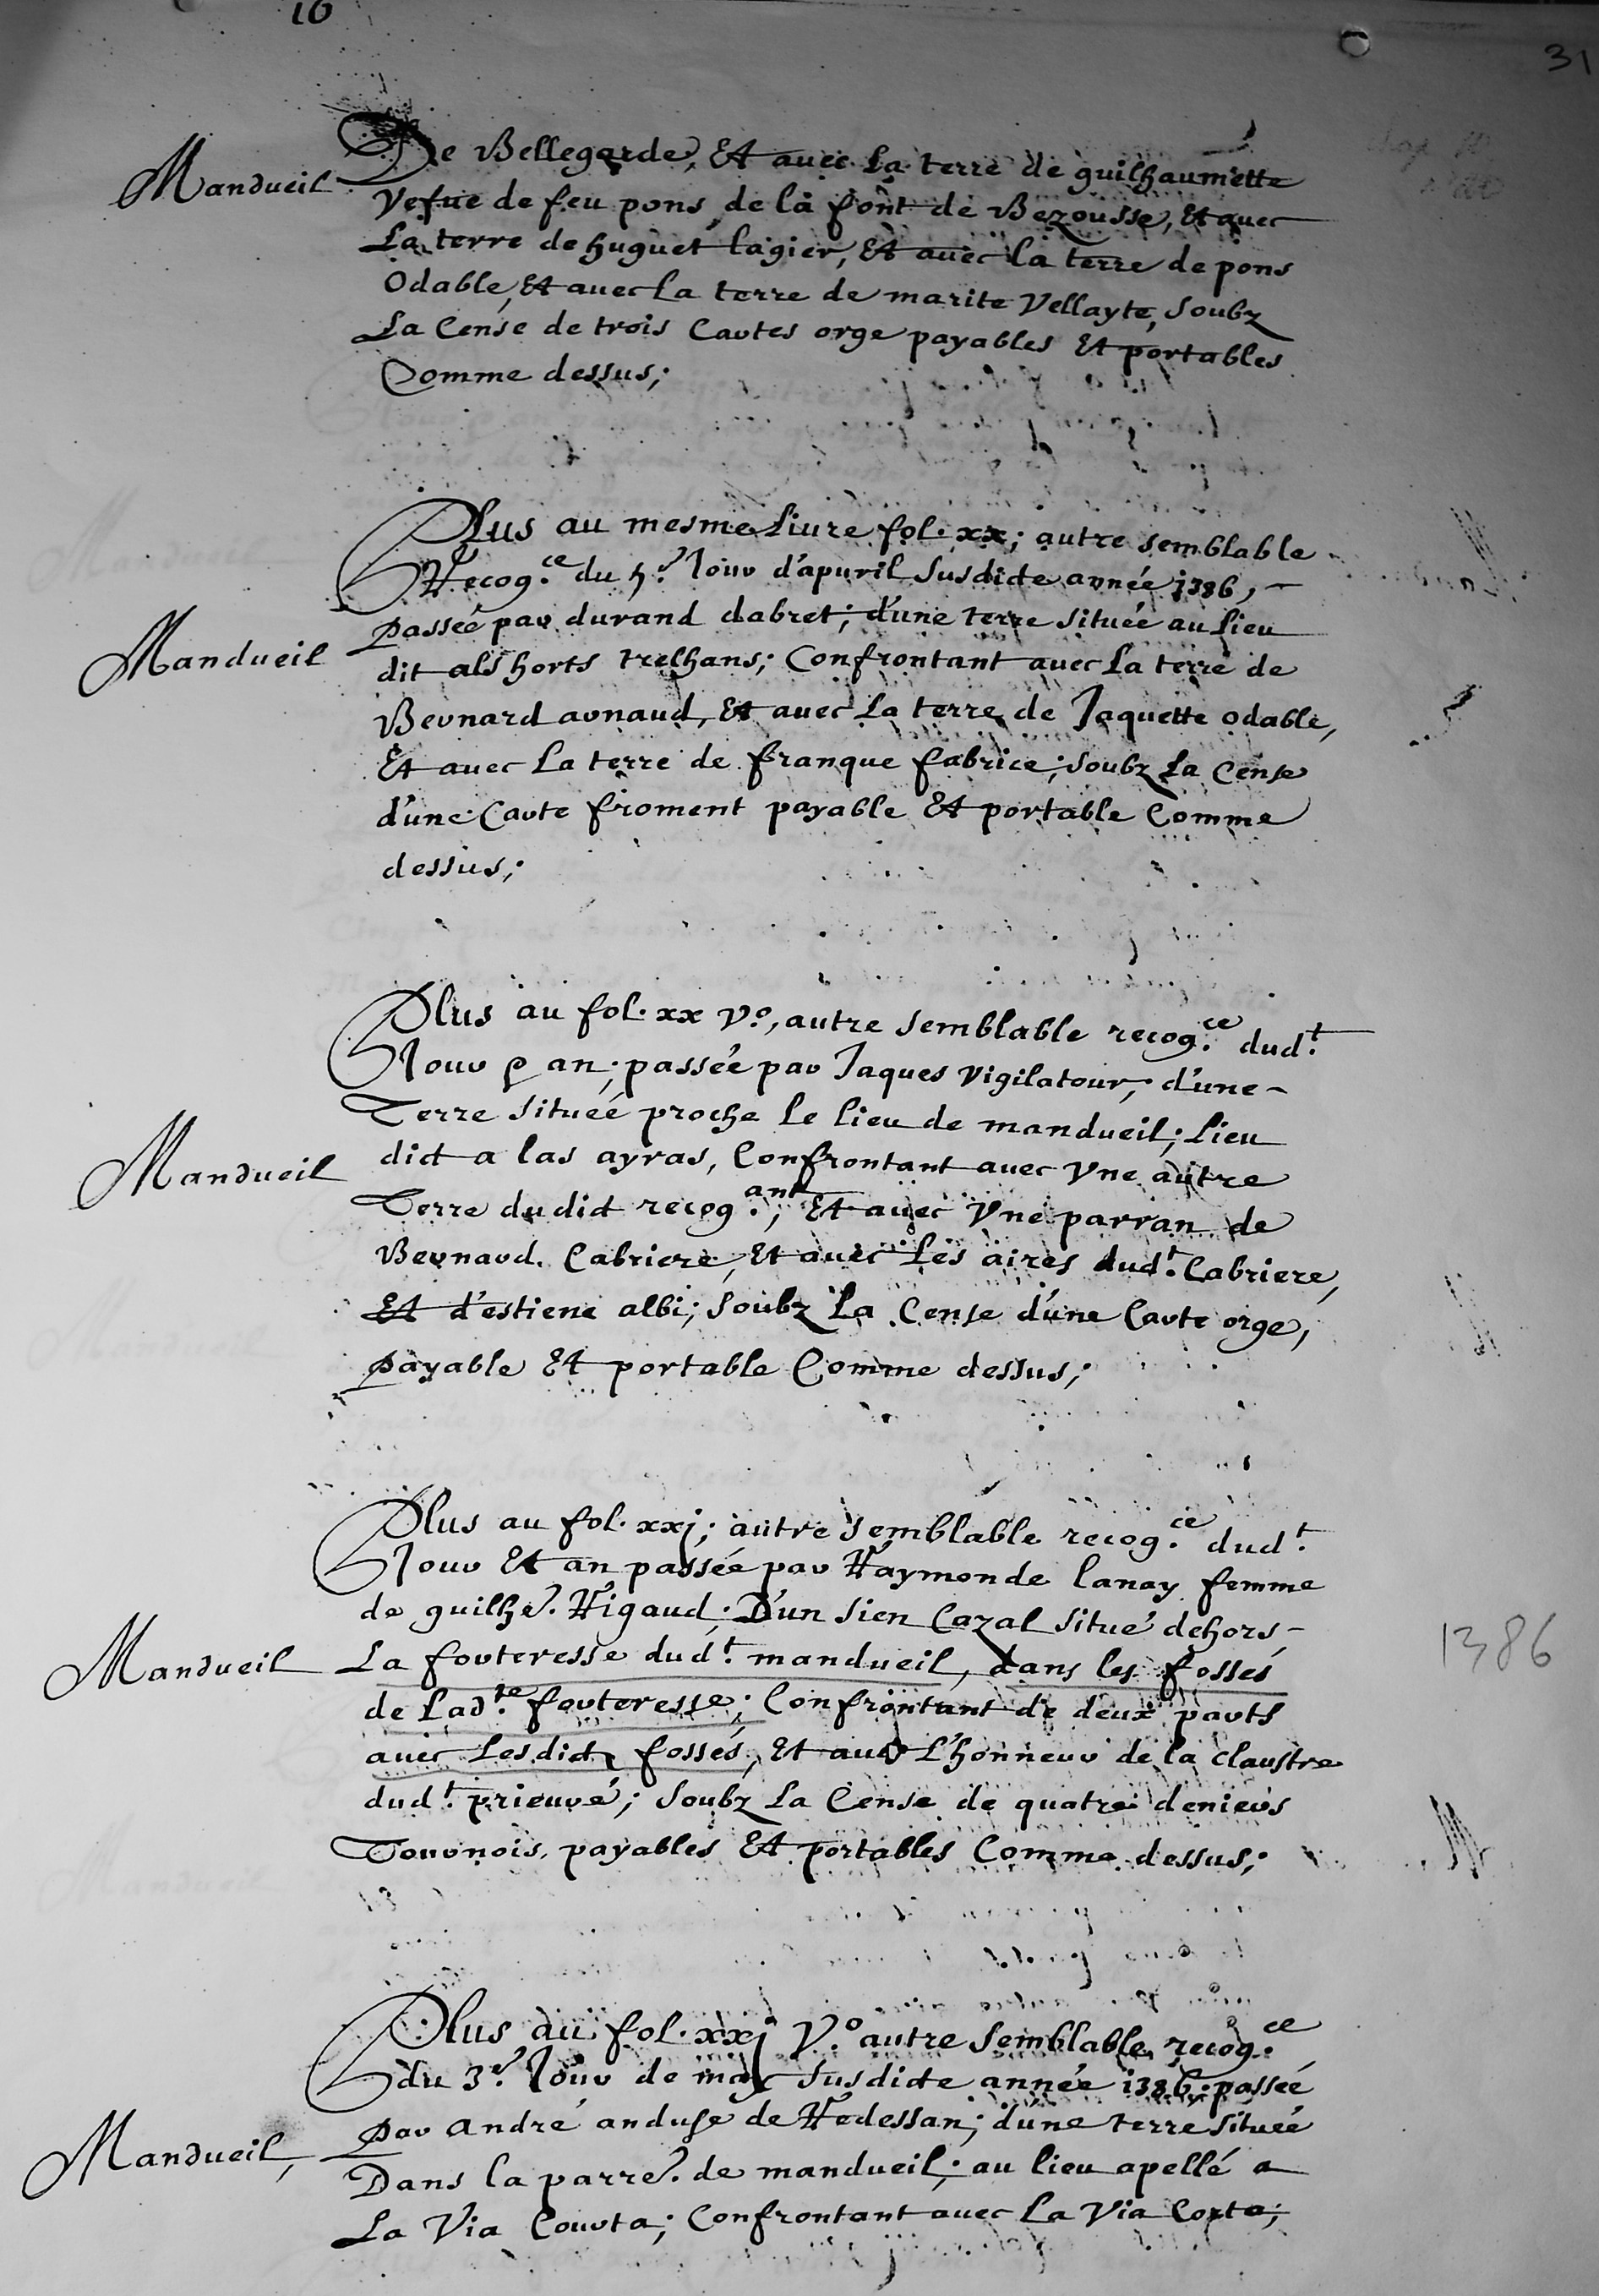 16
31
De Bellegarde, Et avec La terre de guilhaumette
Mandueil
Vefue de feu pons, de la font de Bezousse, Et avec
La terre de huguet lagier, Et avec la terre de pons
Odable, Et avec La terre de marite Vellayte, Soubz
La Cense de trois Cartes orge payables Et portables
Comme dessus;
Plus au mesme Liure fol. xx; autre semblable
Recog.ce du 5.e Jour d'apuril Susdicte année 1386,
passée par durand dabret; d'une terre située au Lieu
Mandueil
dit als horts trelhans; Confrontant avec La terre de
Bernard arnaud, Et avec La terre de Jaquette odable,
Et avec La terre de franque fabrice; Soubz La Cense
d'une Carte froment payable Et portable Comme
dessus;
Plus au fol. xx V.o, autre Semblable recog.ce dud.t
Jour & an; passée par Jaques Vigilatour; d'une
Terre située proche Le lieu de mandueil; Lieu
Mandueil
dict a las ayras, Confrontant avec Vne autre
Terre dudict recog.ant, Et avec Vne parran de
Bernard. Cabriere, Et avec Les aires dud.t Cabriere,
Et d'estiene albi; Soubz La Cense d'une Carte orge,
payable Et portable Comme dessus;
Plus au fol. xxj; autre Semblable recog.ce dud.t
Jour Et an passée par Raymonde lanay femme
de guilhe. Rigaud; D'un sien Cazal situé dehors
1386
Mandueil
La forteresse dud.t mandueil, dans les fossés
de Lad.te forteresse; Confrontant de deux parts
avec Lesdicts fossés, Et aud L'honneur de la Claustre
dud.t prieuré; Soubz La Cense de quatre deniers
Tournois, payables Et portables Comme dessus;
Plus au fol. xxj V.o autre Semblable recog.ce
du 3.e Jour de may Susdicte année 1386. passée
par André anduse de Redessan; d'une terre située
Mandueil,
Dans la parre. de mandueil; au lieu apellé a
La Via Courta; Confrontant avec La Via Corta;